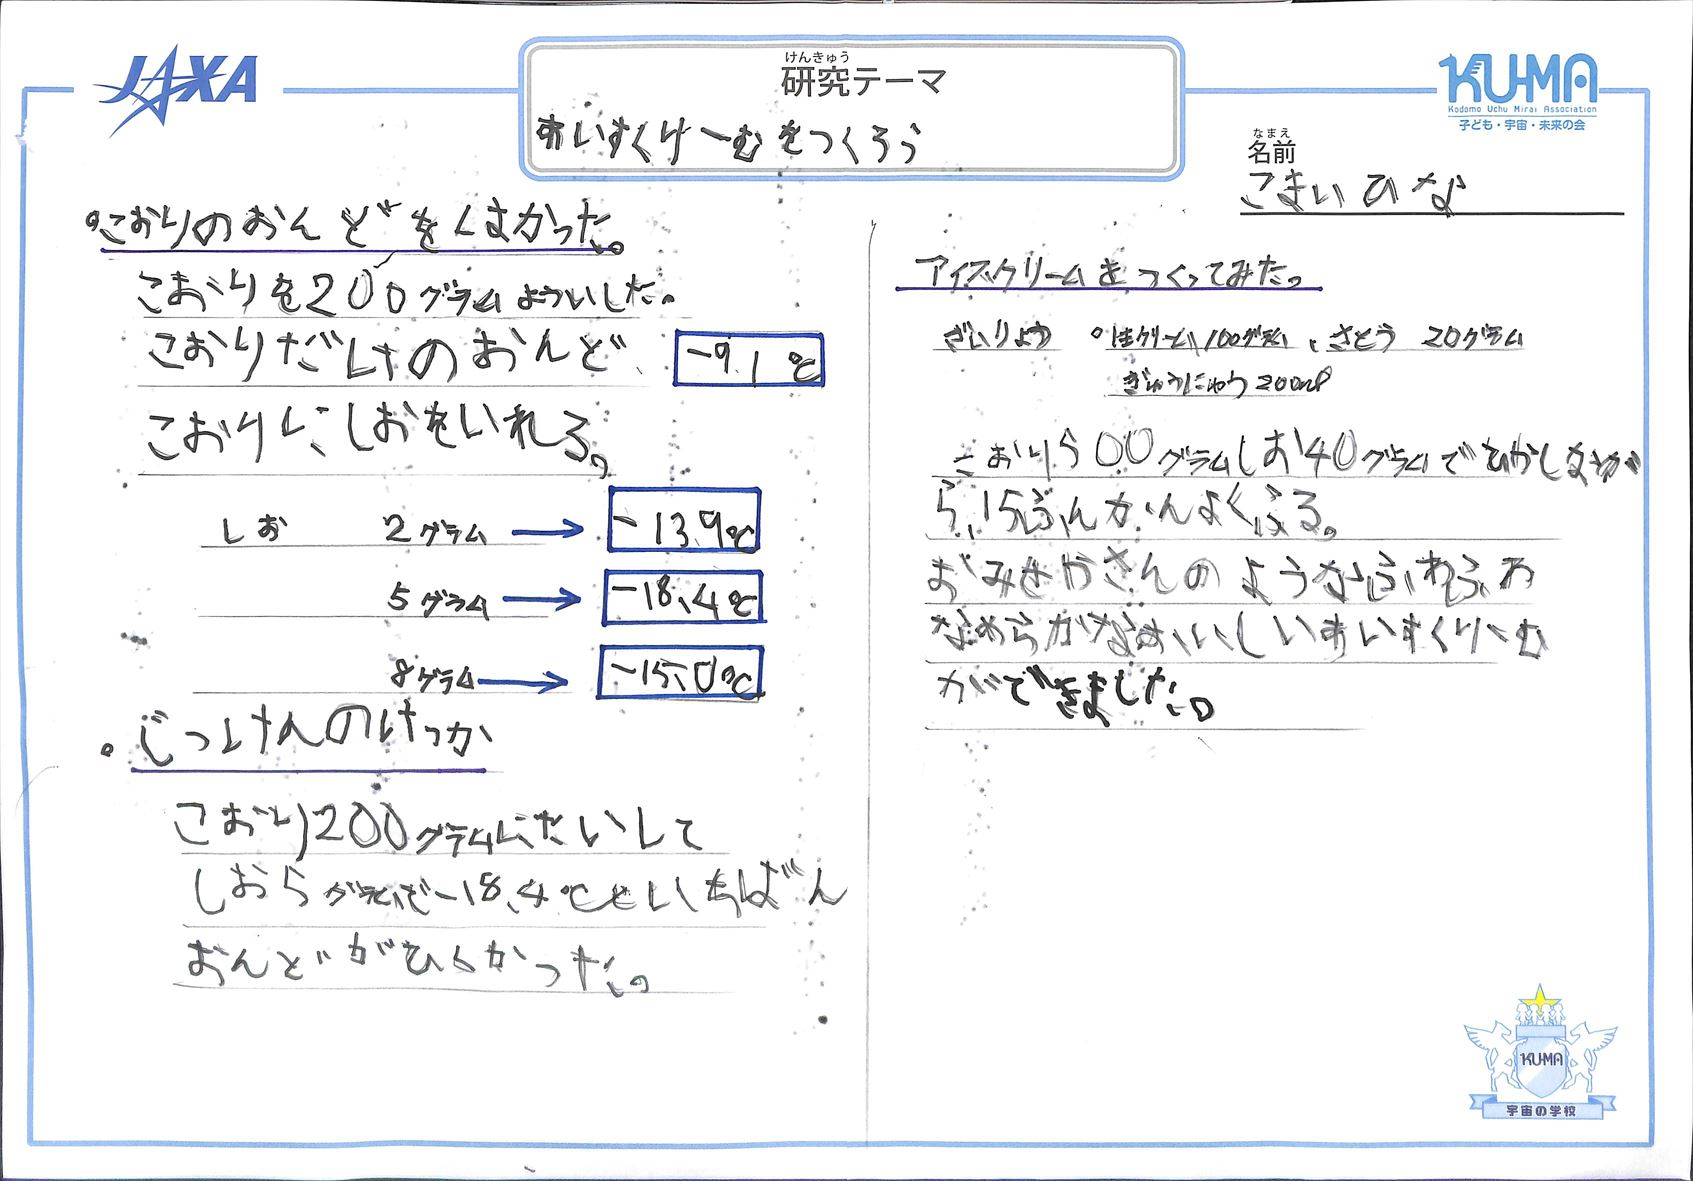 JAXA
けんきゅう
研究テーマ
あいすくりーむをつくろう
KU-MA
Kodomo Uchu Mirai Association
子ども・宇宙・未来の会
なまえ
名前
こまいひな
。こおりのおんどをはかった。
こおりを200グラムよういした。
こおりだけのおんど -9.1℃
こおりにしおをいれる。
しお 2グラム → -13.9℃
5グラム → -18.4℃
8グラム → -15.0℃
。じっけんのけっか
こおり200グラムにたいして
しお5グラムで-18.4℃といちばん
おんどがひくかった。
アイスクリームをつくってみた。
ざいりょう 。生クリーム100グラム、さとう 20グラム
ぎゅうにゅう200ml
こおり500グラムしお40グラムでひやしなが
ら、15ふんかんよくふる。
おみせやさんのようなふわふわ
なめらかなおいしいあいすくりーむ
ができました。
KUMA
宇宙の学校